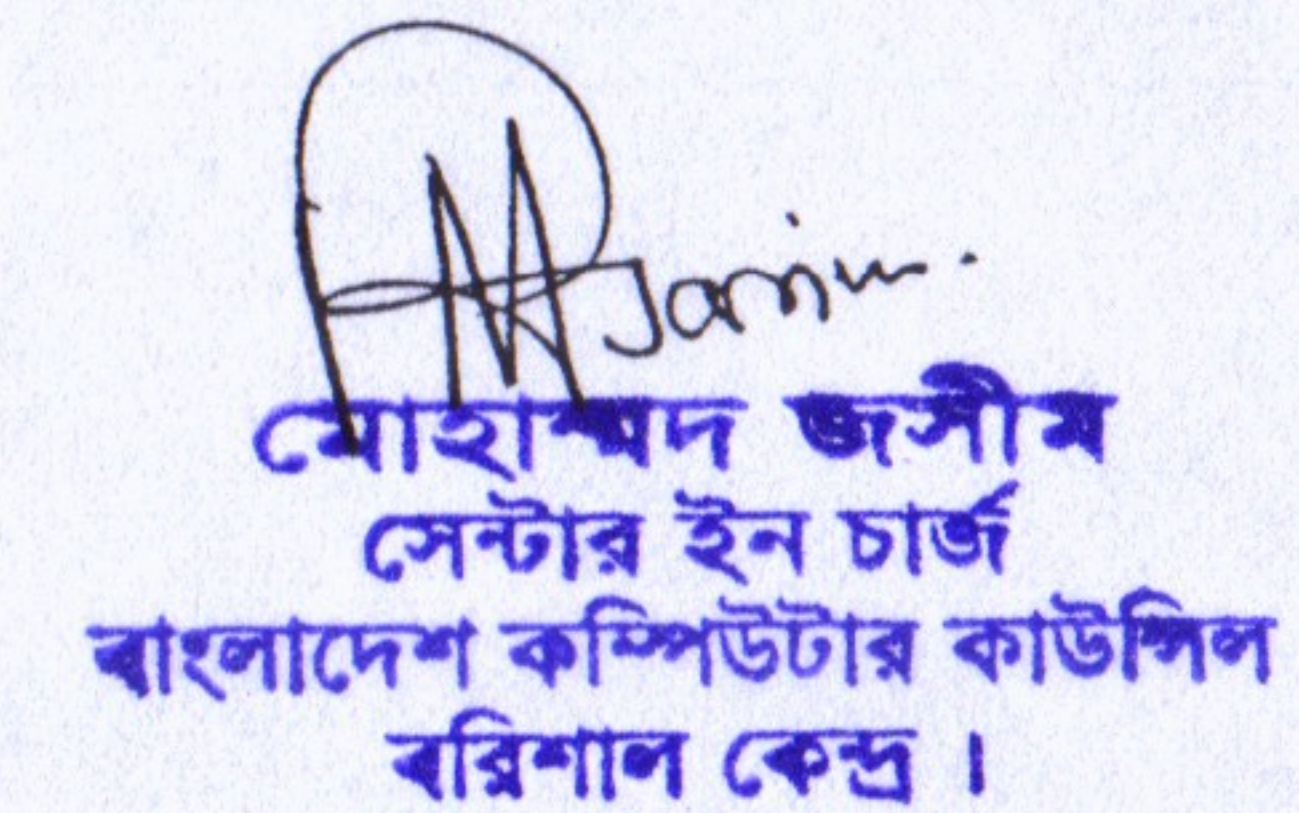 মোহাম্মদ জসীম
সেন্টার ইন চার্জ
বাংলাদেশ কম্পিউটার কাউন্সিল
বরিশাল কেন্দ্র ।